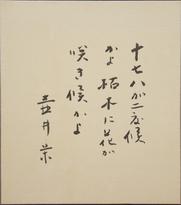 十七八が二度候
かよ枯木に花が
咲き候かよ
壷井栄